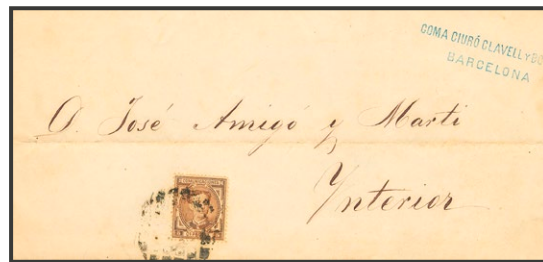 COMA CIURÓ CLAVELL Y
BARCELONA
D. José Amigó y Martí
Ynterior